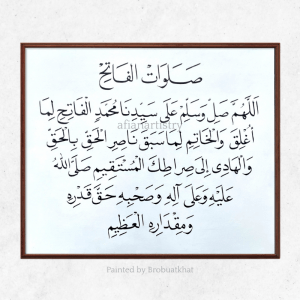 صَلَوَاتُ الْفَاتِحْ
اَللَّهُمَّ صَلِّ وَسَلِّمْ عَلَى سَيِّدِنَا مُحَمَّدٍ الْفَاتِحِ لِمَا
afianartistry
أُغْلِقَ وَالْخَاتِمِ لِمَا سَبَقَ نَاصِرِ الْحَقِّ بِالْحَقِّ
وَالْهَادِى إِلَى صِرَاطِكَ الْمُسْتَقِيمِ صَلَّى اللهُ
عَلَيْهِ وَعَلَى آلِهِ وَصَحْبِهِ حَقَّ قَدْرِهِ
وَمِقْدَارِهِ الْعَظِيمِ
Painted by Brobuatkhat